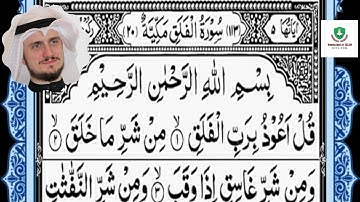 اٰيَاتُهَا ٥ (١١٣) سُوْرَةُ الْفَلَقِ مَكِّيَّةٌ (٢٠)
بِسْمِ اللّٰهِ الرَّحْمٰنِ الرَّحِيْمِ
قُلْ اَعُوْذُ بِرَبِّ الْفَلَقِ ۙ ١ مِنْ شَرِّ مَا خَلَقَ ۙ ٢
وَمِنْ شَرِّ غَاسِقٍ اِذَا وَقَبَ ۙ ٣ وَمِنْ شَرِّ النَّفّٰثٰتِ